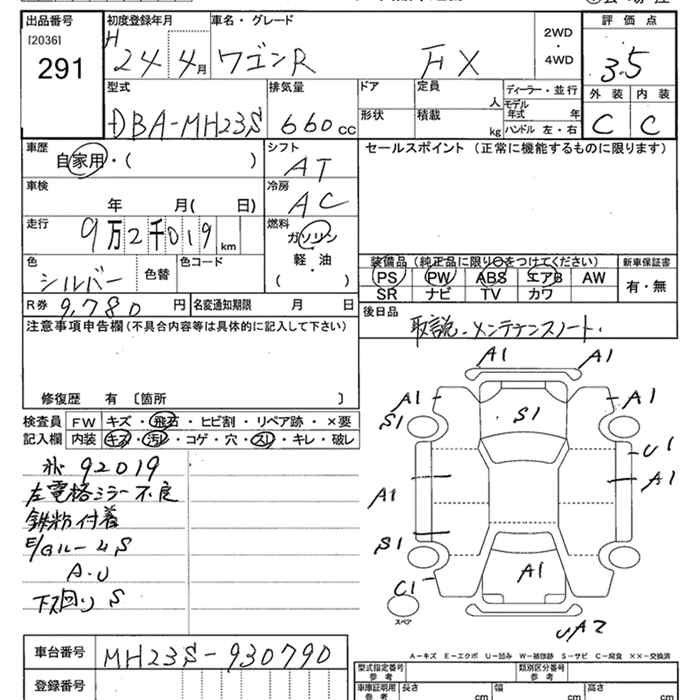 出品番号 初度登録年月 車名・グレード 評価点
[2036]
291
H
24 4月 ワゴンR FX
2WD
・
4WD
3.5
型式 排気量 ドア 定員 ディーラー・並行 外装 内装
DBA-MH23S 660cc 人 モデル年式 年
形状 積載 kg ハンドル 左・右 C C
車歴 シフト セールスポイント (正常に機能するものに限ります)
自家用・( ) AT
車検 冷房
年 月( 日) AC
走行 燃料
9万2千019km ガソリン
軽・油
( )
色 色替 色コード
シルバー
装備品(純正品に限り〇をつけてください) 新車保証書
PS PW ABS エアB AW 有・無
SR ナビ TV カワ
R券 9,780 円 名変通知期限 月 日
後日品
取説・メンテナンスノート.
注意事項申告欄(不具合内容等は具体的に記入して下さい)
修復歴 有 〔箇所 〕
検査員 FW キズ・飛石・ヒビ割・リペア跡・×要
記入欄 内装 キズ・汚レ・コゲ・穴・スレ・キレ・破レ
92019
左電格ミラー不良
鉄粉付着
E/Gルーム S
A.U
下廻り S
A1 A1
A1 S1 A1
S1
U1
A1 A1
S1
C1 A1
スペア
UA2
A-キズ E-エクボ U-凹み W-補修跡 S-サビ C-腐食 ××-交換済
車台番号 MH23S-930790
登録番号
型式指定番号 類別区分番号
参考 参考
車庫証明用 長さ 幅 高さ
参考 cm cm cm